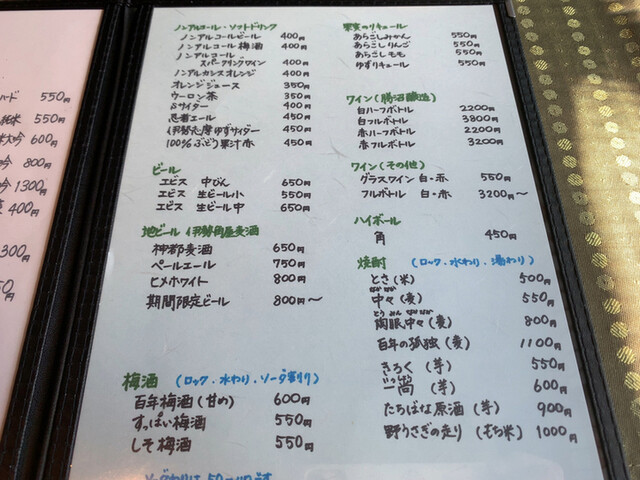 ハード 550円
純米 550円
大吟 600円
吟 800円
吟 1300円
400円
300円
50円
ノンアルコール・ソフトドリンク
ノンアルコールビール 400円
ノンアルコール 梅酒 400円
ノンアルコール
スパークリングワイン 400円
ノンアルカシスオレンジ 400円
オレンジジュース 350円
ウーロン茶 350円
Sサイダー 400円
忍者エール 450円
伊勢志摩ゆずサイダー 450円
100%ぶどう果汁赤 450円
ビール
エビス 中びん 650円
エビス 生ビール小 550円
エビス 生ビール中 650円
地ビール 伊勢角屋麦酒
神都麦酒 650円
ペールエール 750円
ヒメホワイト 800円
期間限定ビール 800円〜
梅酒 (ロック・水わり・ソーダ割り)
百年梅酒(甘め) 600円
すっぱい梅酒 550円
しそ梅酒 550円
果実のリキュール
あらごしみかん 550円
あらごしりんご 550円
あらごしもも 550円
ゆずリキュール 550円
ワイン(勝沼醸造)
白ハーフボトル 2200円
白フルボトル 3800円
赤ハーフボトル 2200円
赤フルボトル 3200円
ワイン(その他)
グラスワイン 白・赤 550円
フルボトル 白・赤 3200円〜
ハイボール
角 450円
焼酎 (ロック・水わり・湯わり)
とさ(米) 500円
なかなか
中々(麦) 550円
とうみんなかなか
陶眠中々(麦) 800円
百年の孤独(麦) 1100円
きろく(芋) 550円
一尚(芋) 600円
たちばな原酒(芋) 900円
野うさぎの走り(もち米) 1000円